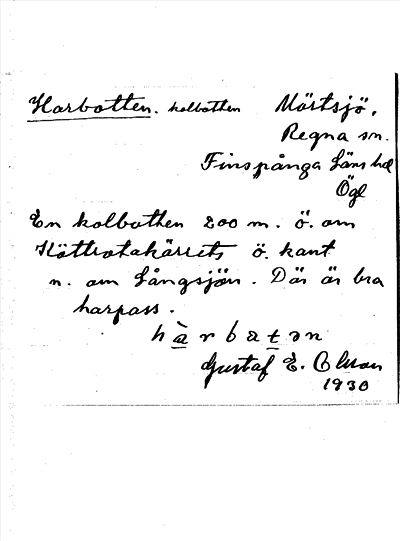 Harbotten. kolbotten Mörtsjö,
Regna sn.
Finspånga läns hd
Ögl
En kolbotten 200 m. ö. om
ö. kant
n. om Långsjön. Där är bra
harpass.
hàrbatən
Gustaf E. Olsson
1930